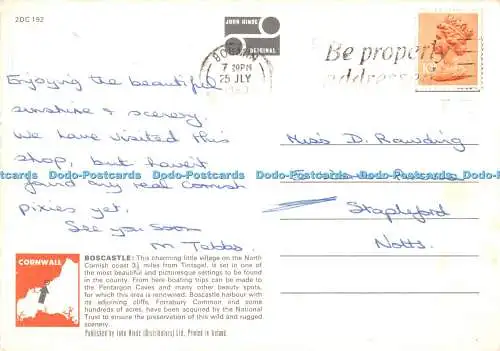 2DC 192
JOHN HINDE
ORIGINAL
BODMIN
7 30PM
25 JLY
Be properly
addressed
Enjoying the beautiful
sunshine & scenery.
We have visited this
shop, but haven't
found any real Cornish
pixies yet.
See you soon
M. Tebbs.
Miss D. Rawding
Stapleford
Notts.
Dodo-Postcards Dodo-Postcards Dodo-Postcards Dodo-Postcards Dodo-Postcards
CORNWALL
BOSCASTLE: This charming little village on the North
Cornish coast 3½ miles from Tintagel, is set in one of
the most beautiful and picturesque settings to be found
in the county. From here boating trips can be made to
the Pentargon Caves and many other beauty spots,
for which this area is renowned. Boscastle harbour with
its adjoining cliffs, Forrabury Common and some
hundreds of acres, have been acquired by the National
Trust to ensure the preservation of this wild and rugged
scenery.
Published by John Hinde (Distributors) Ltd., Printed in Ireland.